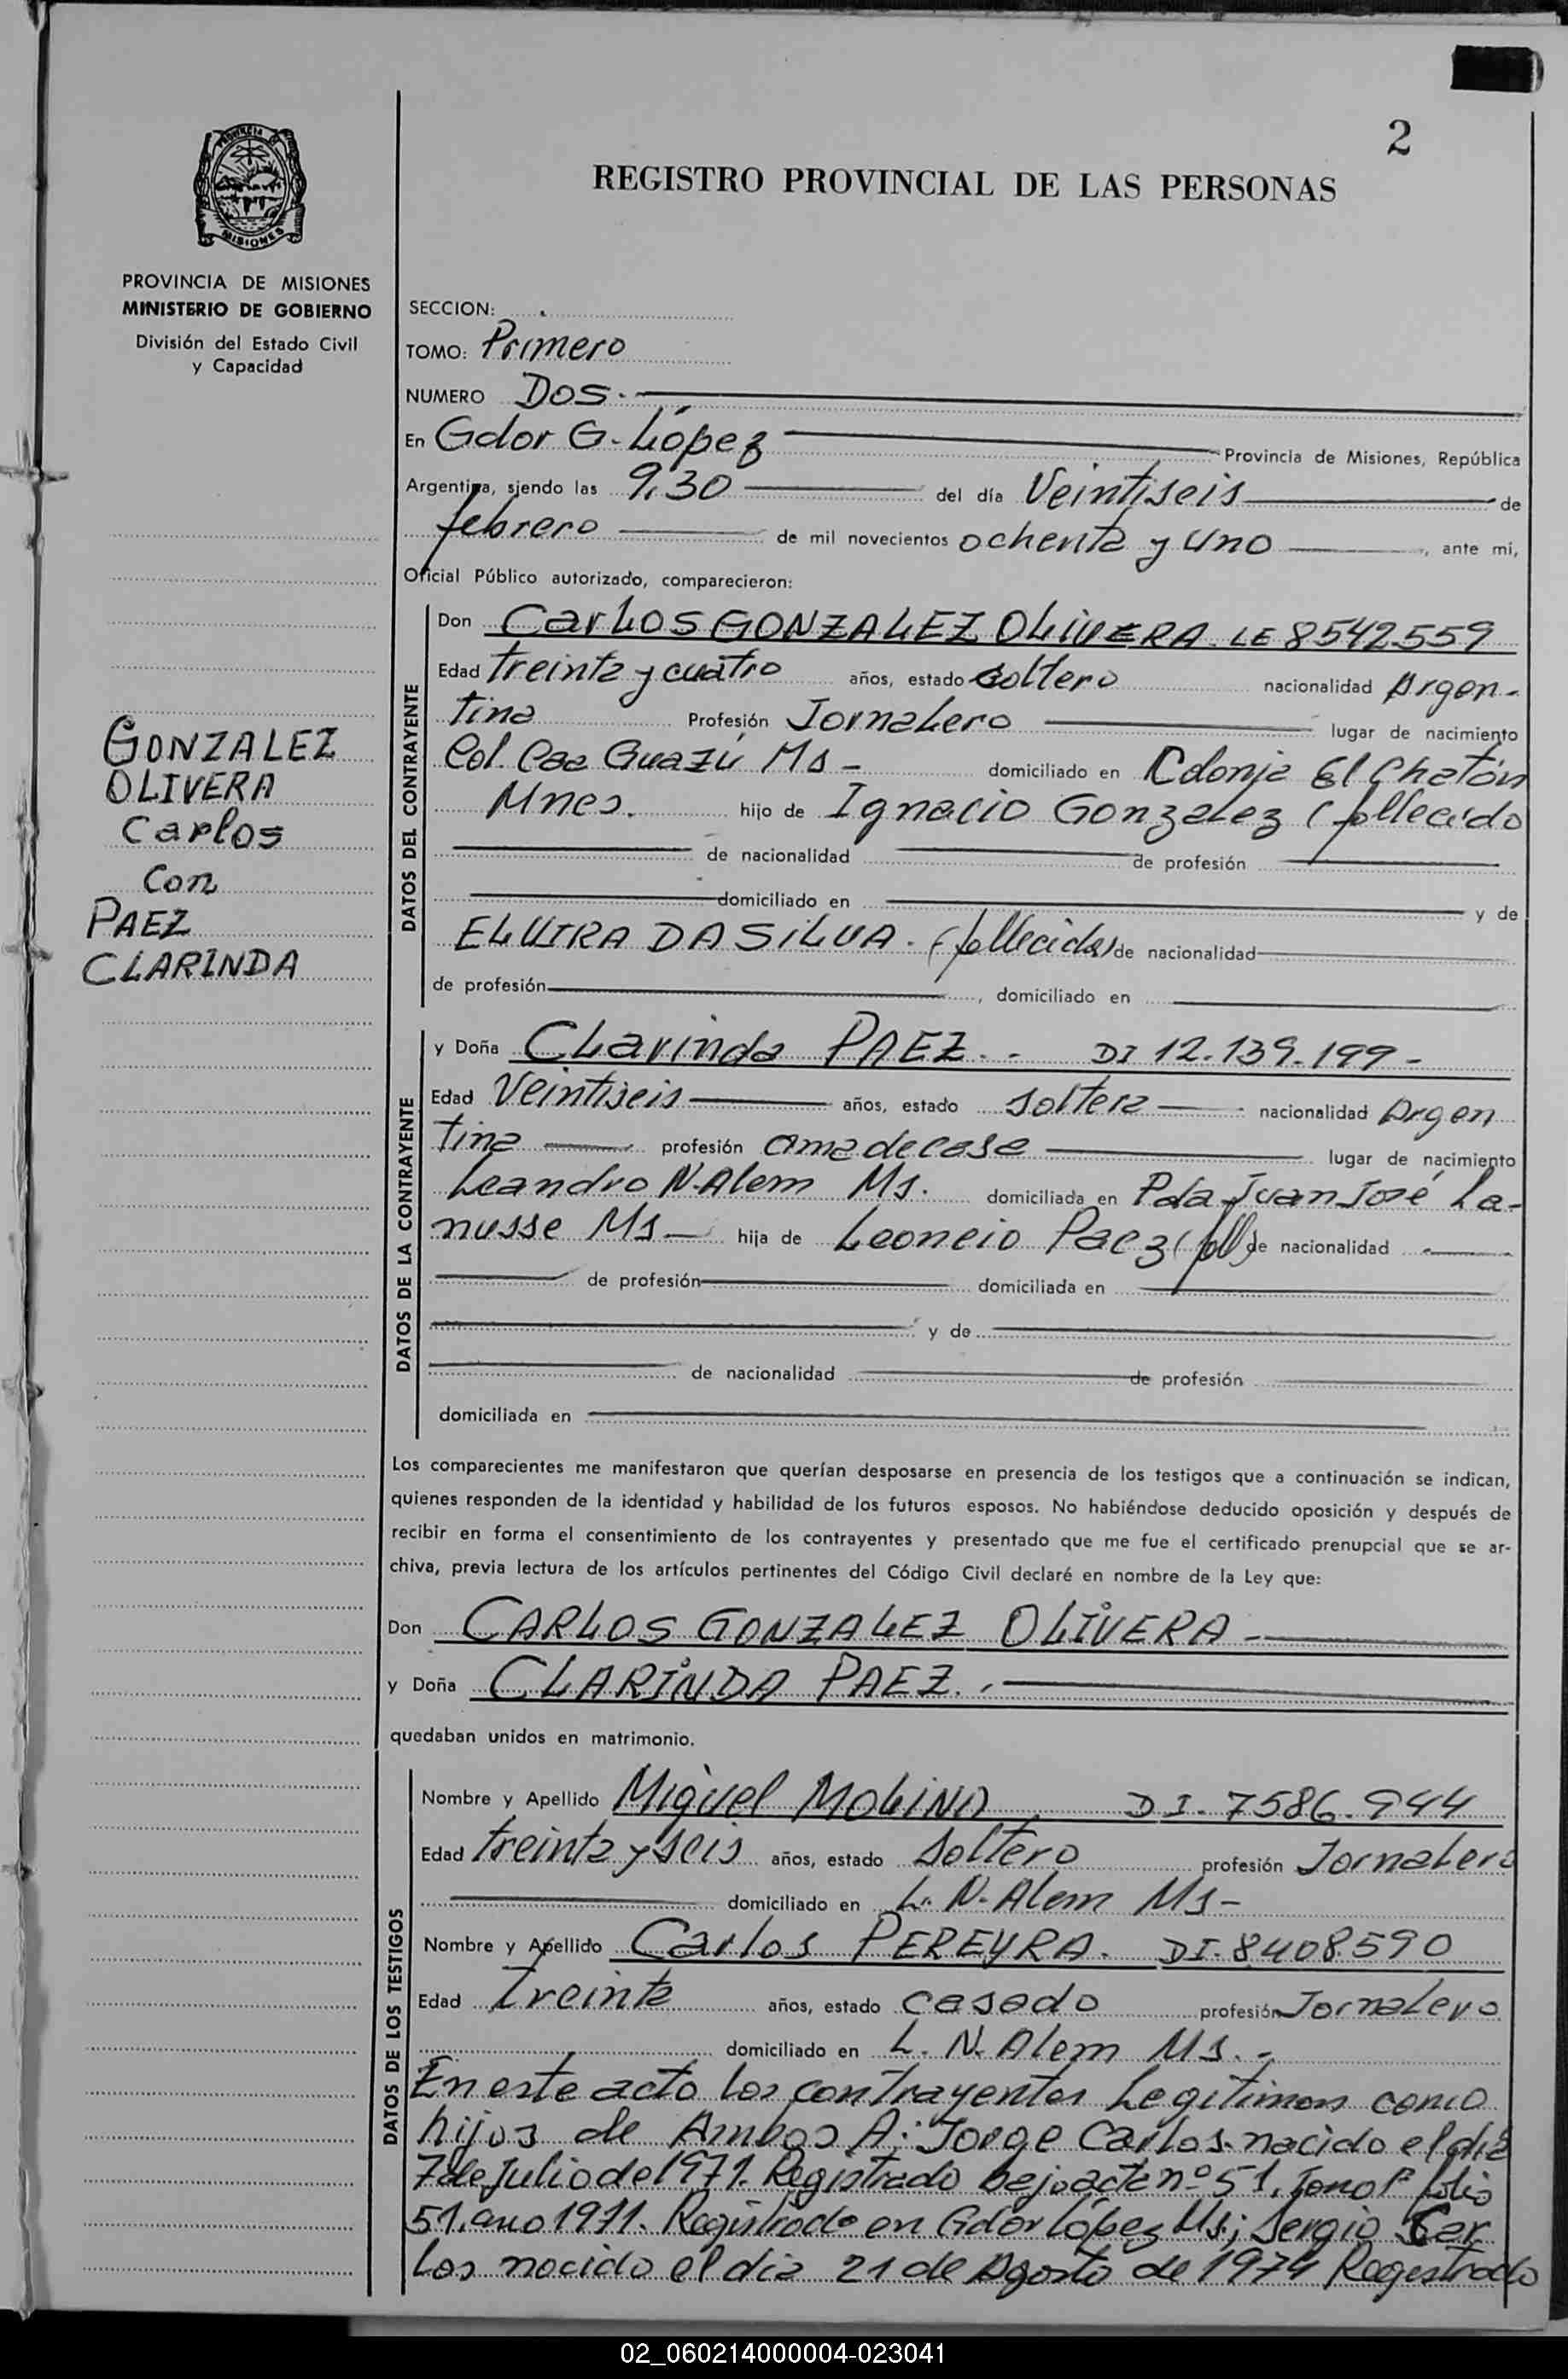 2
REGISTRO PROVINCIAL DE LAS PERSONAS
PROVINCIA DE MISIONES
MINISTERIO DE GOBIERNO
División del Estado Civil
y Capacidad
SECCION:
TOMO: Primero
NUMERO DOS.
En Gdor G. López Provincia de Misiones, República
Argentina, siendo las 9,30 del día Veintiseis de
febrero de mil novecientos ochenta y uno, ante mi,
Oficial Público autorizado, comparecieron:
GONZALEZ
OLIVERA
Carlos
Con
PAEZ
CLARINDA
DATOS DEL CONTRAYENTE
Don CarLOS GONZALEZ OLIVERA. LE 8542559
Edad treinta y cuatro años, estado soltero nacionalidad Argen-
tina Profesión Jornalero lugar de nacimiento
Col. Caa Guazú Ms - domiciliado en Colonia El Chatón
Mnes. hijo de Ignacio Gonzalez (fallecido
de nacionalidad de profesión
domiciliado en y de
ELVIRA DA SILVA. (fallecida) de nacionalidad
de profesión, domiciliado en
DATOS DE LA CONTRAYENTE
y Doña Clarinda PAEZ. - DI 12.139.199-
Edad Veintiseis años, estado soltera nacionalidad Argen
tina profesión ama de casa lugar de nacimiento
Leandro N. Alem Ms. domiciliada en Pda Juan José La-
nusse Ms hija de Leoncio Paez (fall) de nacionalidad
de profesión domiciliada en
y de
de nacionalidad de profesión
domiciliada en
Los comparecientes me manifestaron que querían desposarse en presencia de los testigos que a continuación se indican,
quienes responden de la identidad y habilidad de los futuros esposos. No habiéndose deducido oposición y después de
recibir en forma el consentimiento de los contrayentes y presentado que me fue el certificado prenupcial que se ar-
chiva, previa lectura de los artículos pertinentes del Código Civil declaré en nombre de la Ley que:
Don CARLOS GONZALEZ OLIVERA-
y Doña CLARINDA PAEZ.
quedaban unidos en matrimonio.
DATOS DE LOS TESTIGOS
Nombre y Apellido Miguel MOLINA. DI. 7586.944
Edad treinta y seis años, estado soltero profesión Jornalero
domiciliado en L. N. Alem Ms-
Nombre y Apellido Carlos PEREYRA. DI. 8408.590
Edad treinta años, estado casado profesión Jornalero
domiciliado en L. N. Alem Ms. -
En este acto los contrayentes Legitiman como
hijos de Ambos A: Jorge Carlos nacido el dia
7 de Julio de 1971. Registrado bajo acta nº 51. Tomo 1º folio
51. año 1971. Registrado en Gdor López Ms.; Sergio Car
los nacido el dia 21 de Agosto de 1974 Registrado
02_060214000004-023041